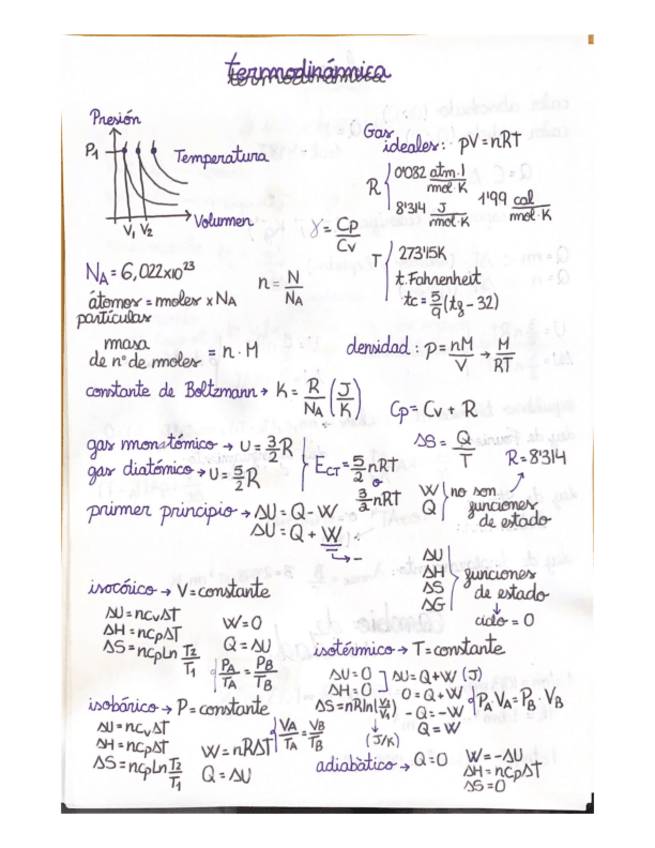 termodinámica
Presión
P1
Temperatura
Volumen
V1 V2
Gas
ideales: pV=nRT
R
0'082 atm·l / mol·K
8'314 J / mol·K
1'99 cal / mol·K
γ = Cp / Cv
T
273'15K
t. Fahrenheit
tc = 5/9 (tg - 32)
NA = 6,022x10²³
n = N / NA
átomos = moles x NA
partículas
masa
de nº de moles = n · M
densidad: ρ = nM / V → M / RT
constante de Boltzmann → K = R / NA (J / K)
Cp = Cv + R
gas monatómico → U = 3/2 R
gas diatómico → U = 5/2 R
ECT = 5/2 nRT
o
3/2 nRT
ΔS = Q / T
R = 8'314
W
Q
no son
funciones
de estado
primer principio → ΔU = Q - W
ΔU = Q + W
→ -
ΔU
ΔH
ΔS
ΔG
funciones
de estado
↓
ciclo = 0
isocórico → V = constante
ΔU = ncvΔT
ΔH = ncpΔT
ΔS = ncpLn T2 / T1
W = 0
Q = ΔU
PA / TA = PB / TB
isotérmico → T = constante
ΔU = 0
ΔH = 0
ΔS = nRln(V2 / V1)
(J/K)
ΔU = Q + W (J)
0 = Q + W
-Q = -W
Q = W
PA · VA = PB · VB
isobárico → P = constante
ΔU = ncvΔT
ΔH = ncpΔT
ΔS = ncpLn T2 / T1
W = nRΔT
Q = ΔU
VA / TA = VB / TB
adiabàtico → Q = 0
W = -ΔU
ΔH = nCpΔT
ΔS = 0